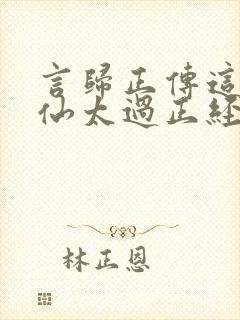 言歸正傳這
仙太過正經
林正恩